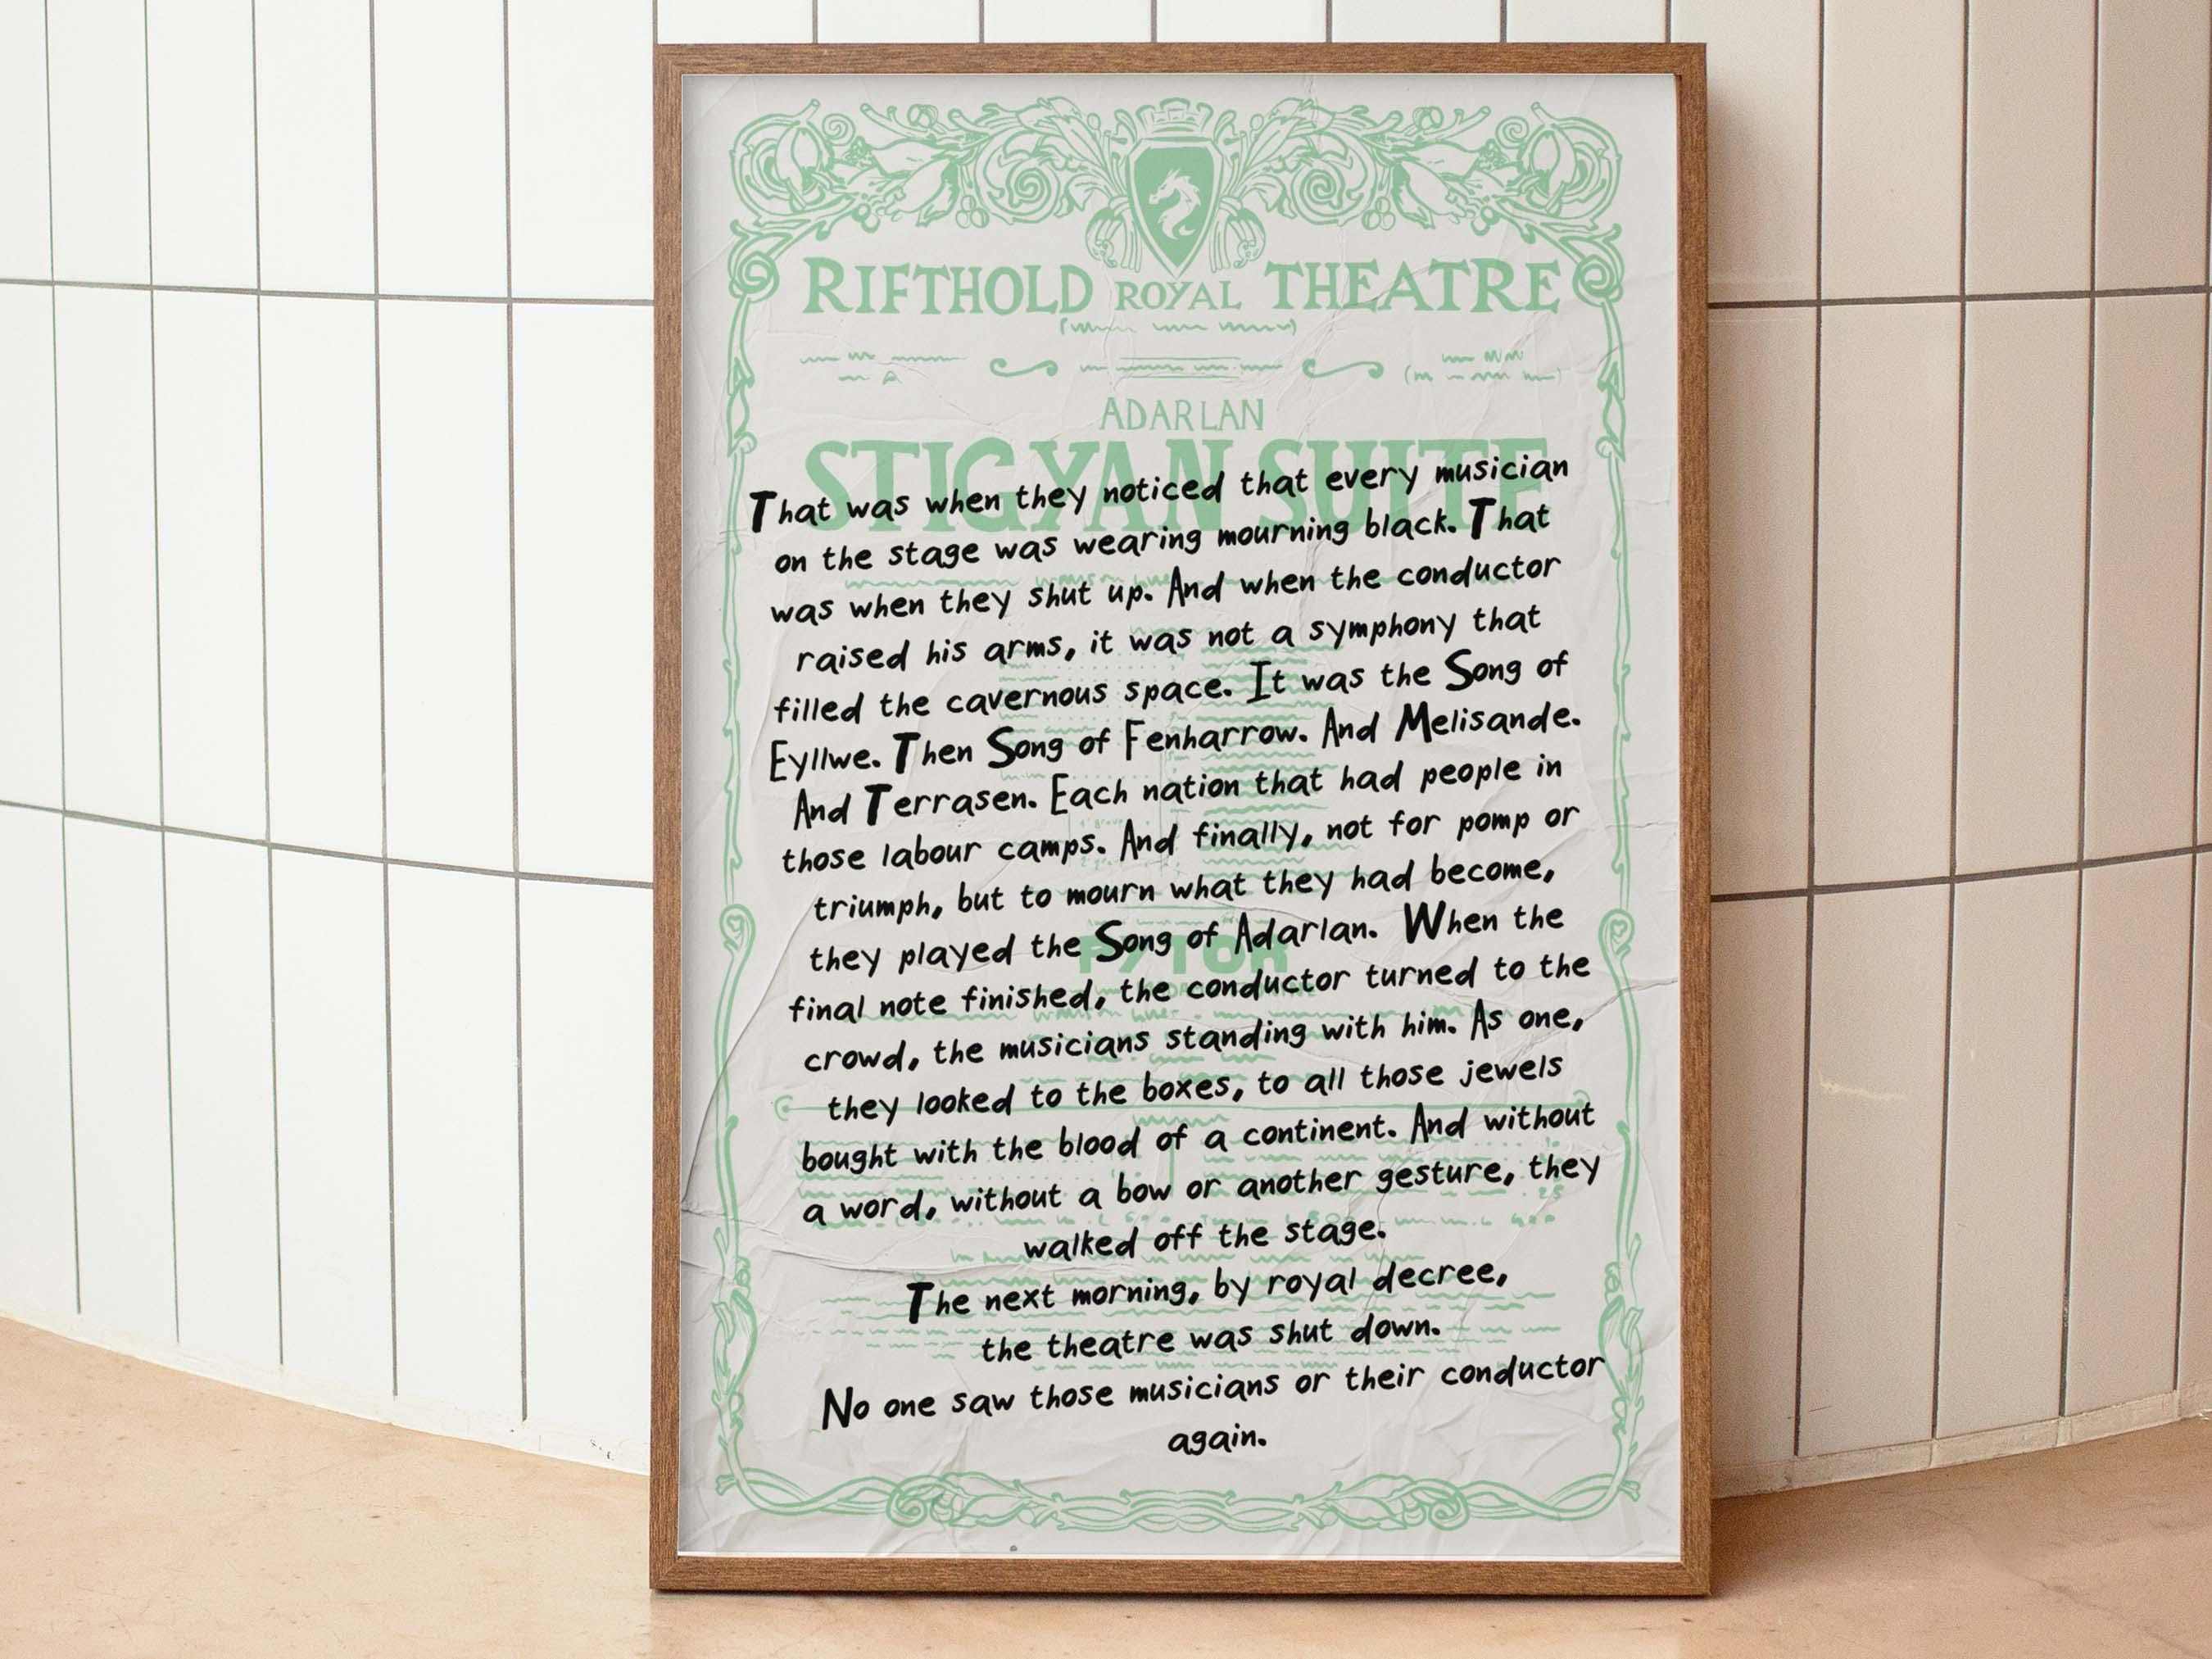 RIFTHOLD ROYAL THEATRE
ADARLAN
STIGYAN SUITE
That was when they noticed that every musician
on the stage was wearing mourning black. That
was when they shut up. And when the conductor
raised his arms, it was not a symphony that
filled the cavernous space. It was the Song of
Eyllwe. Then Song of Fenharrow. And Melisande.
And Terrasen. Each nation that had people in
those labour camps. And finally, not for pomp or
triumph, but to mourn what they had become,
they played the Song of Adarlan. When the
final note finished, the conductor turned to the
crowd, the musicians standing with him. As one,
they looked to the boxes, to all those jewels
bought with the blood of a continent. And without
a word, without a bow or another gesture, they
walked off the stage.
The next morning, by royal decree,
the theatre was shut down.
No one saw those musicians or their conductor
again.